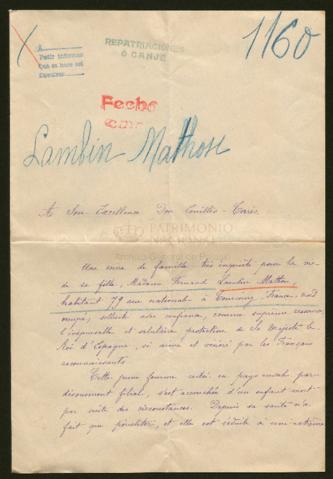 A
Pedir informes
REPATRIACIONES
Ó CANJE
1160
Fecha
Lambin Mathose
A Son Excellence Don Emilio Torrès.
PATRIMONIO
NACIONAL
Une mère de famille très inquiète pour la vie
de sa fille, Madame Fernand Lambin Mathon
habitant 79 rue nationale à Tourcoing, France, nord
envahi, sollicite avec confiance, comme suprême ressource
l'inépuisable et salutaire protection de Sa Majesté le
Roi d'Espagne, si aimé et vénéré par les Français
reconnaissants.
Cette jeune femme restée en pays envahi par
dévouement filial, s'est accouchée d'un enfant mort
par suite des circonstances. Depuis sa santé n'a
fait que péricliter, et elle est réduite à une extrême